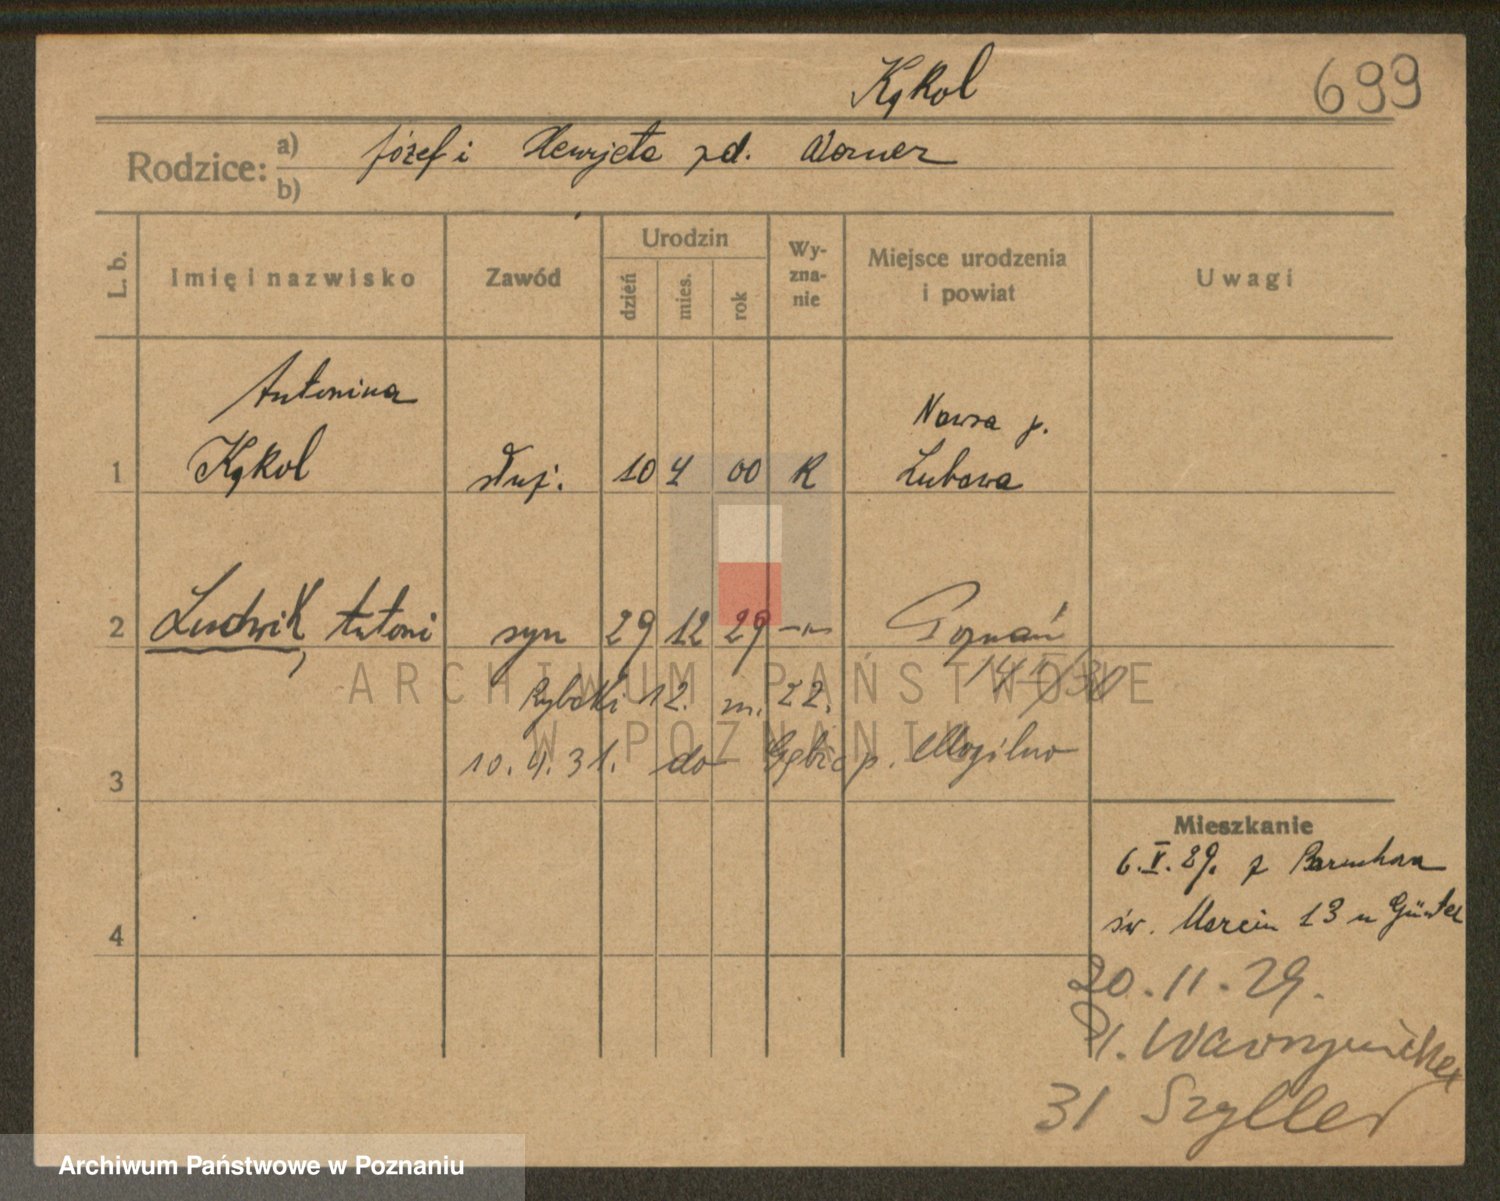 Kąkol
699
Rodzice: a) Józef i Henrjeta zd. Werner
b)
L. b.
Imię i nazwisko
Zawód
Urodzin
dzień
mies.
rok
Wy-
zna-
nie
Miejsce urodzenia
i powiat
Uwagi
Antonina
1 Kąkol służ. 10 4 00 R Nawra p.
Lubawa
2 Ludwik, Antoni syn 29 12 29 -"- Poznań
Rybaki 12. m. 22.
3 10.4.31. do Gębic p. Mogilno
4
Mieszkanie
6.V.29. z
św. Marcin 13 u Günter
20.11.29.
31 Szyller
ARCHIWUM PAŃSTWOWE
W POZNANIU
Archiwum Państwowe w Poznaniu